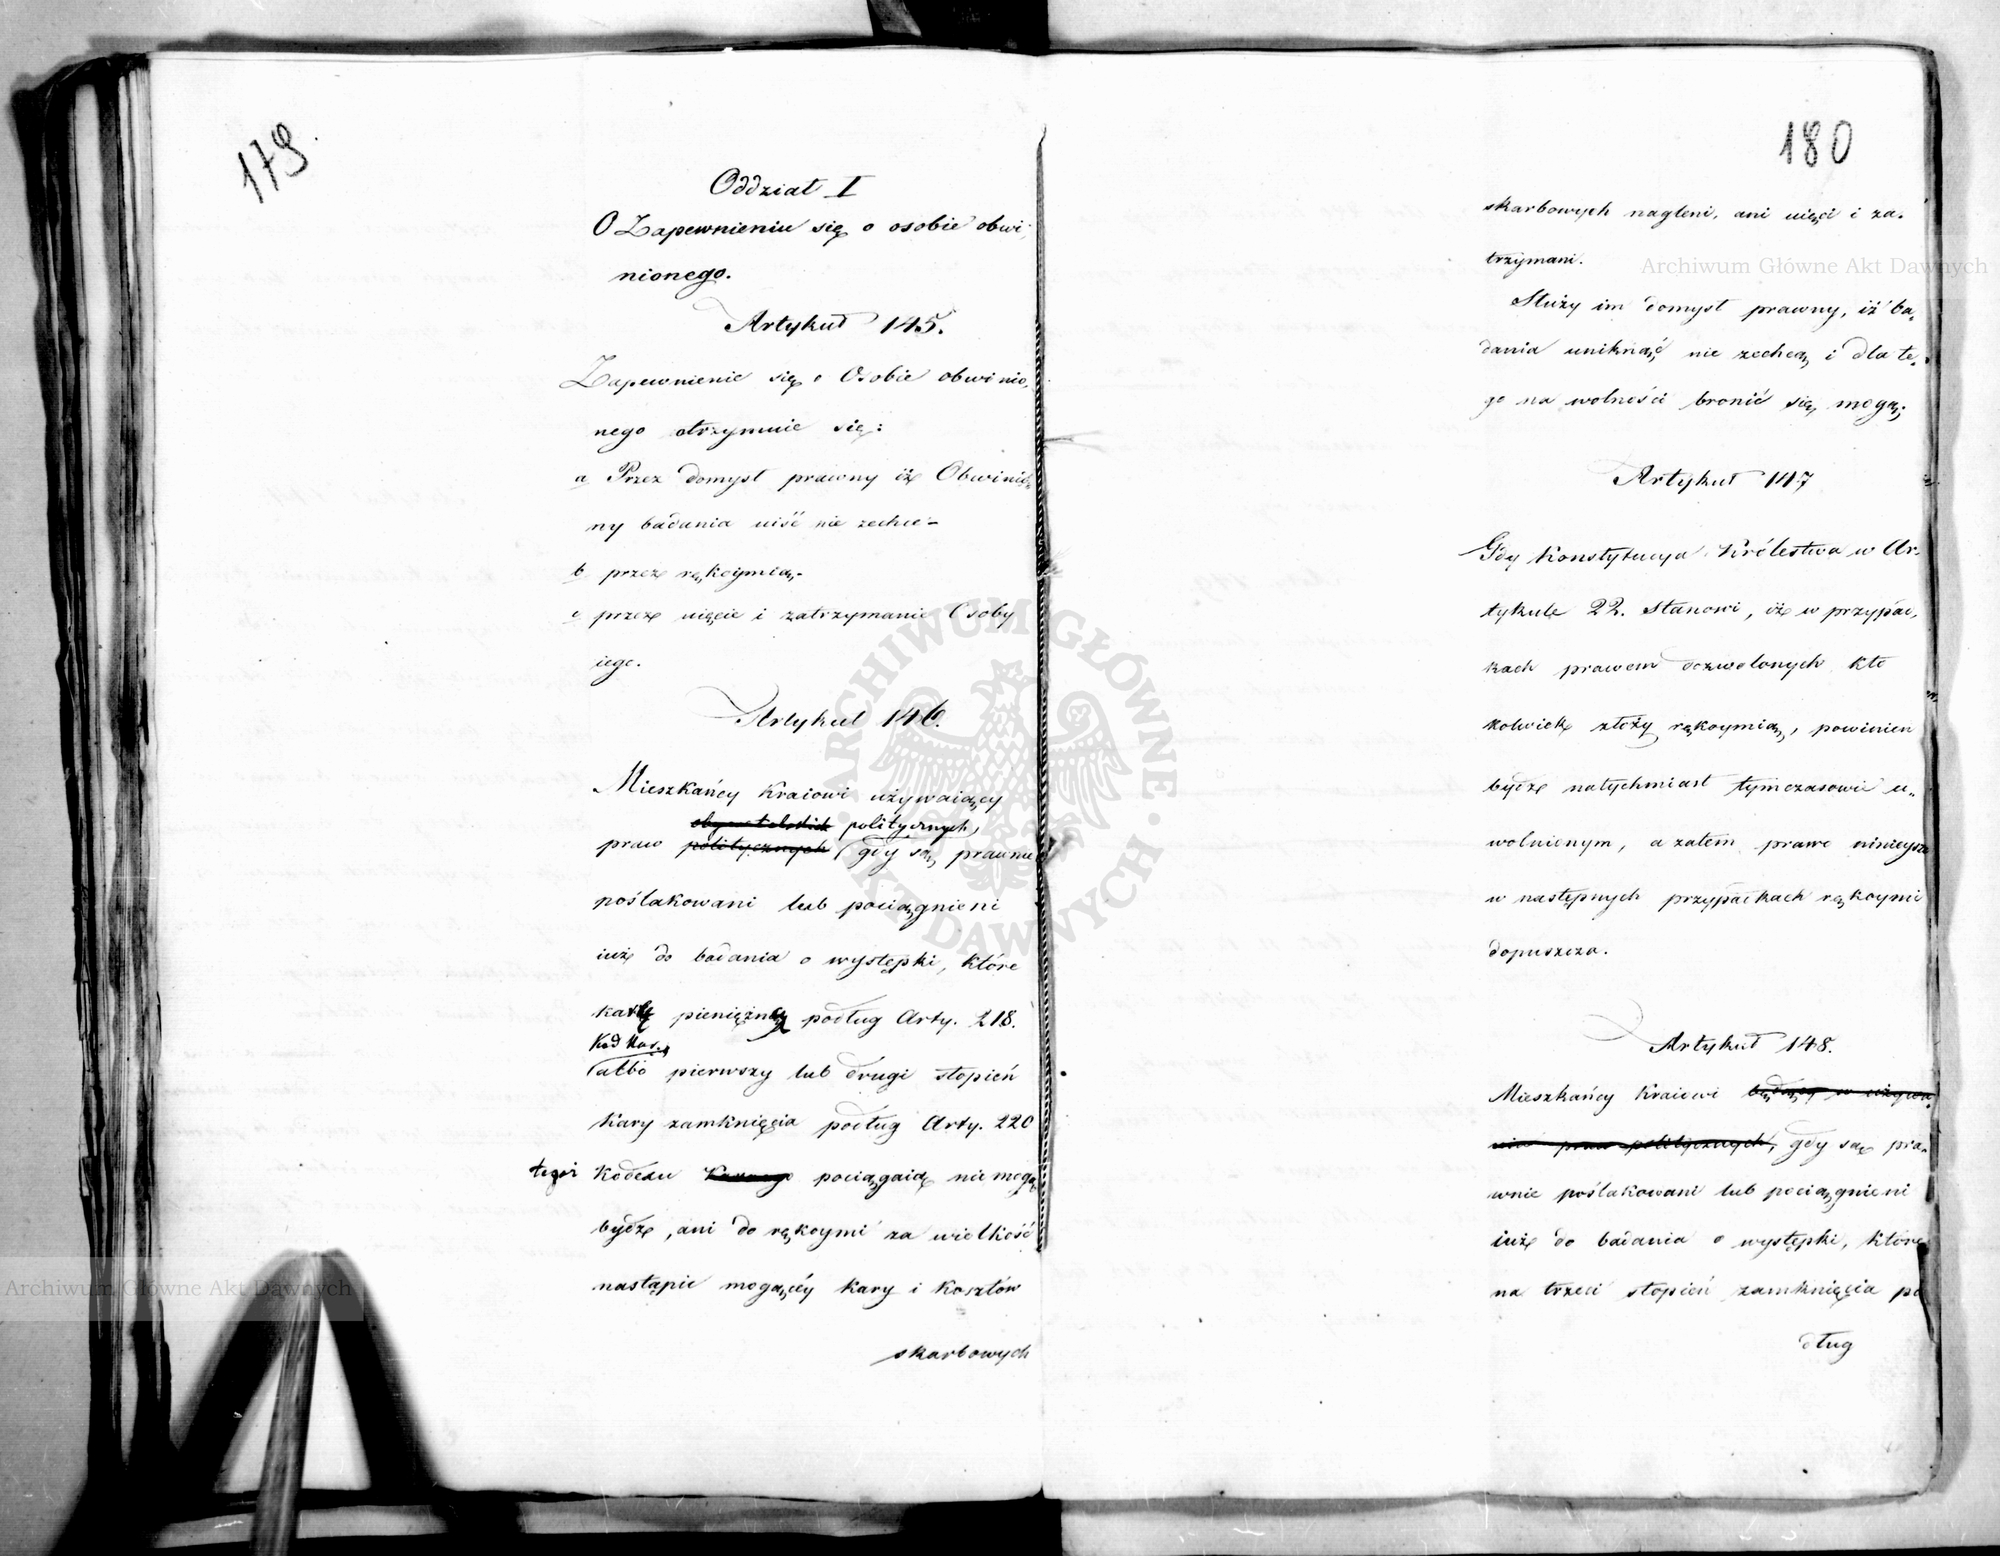 179.
Oddział I
O Zapewnieniu się o osobie obwi,
nionego.
Artykuł 145.
Zapewnienie się o Osobie obwinio,
nego otrzymuie się:
a Przez domysł prawny iż Obwinio,
ny badania uiść nie zechce-
b przez rękoymią-
c przez uięcie i zatrzymanie Osoby
iego.
Artykuł 146.
Mieszkańcy Kraiowi używaiący
obywatelskich politycznych,
praw politycznych gdy są prawnie
poślakowani lub pociągnieni
iuż do badania o występki, które
karę pieniężną podług Arty. 218.
Kod Kar.
albo pierwszy lub drugi stopień
kary zamknięcia podług Arty. 220
tegoż Kodexu Karnego pociągaią nie mogą
bydź, ani do rękoymi za wielkość
nastąpić mogącéy kary i kosztów
skarbowych
180
skarbowych nagleni, ani uięci i za,
trzymani.
Służy im domysł prawny, iż ba,
dania uniknąć nie zechcą i dla te,
go na wolności bronić się mogą;
Artykuł 147
Gdy Konstytucya Królestwa w Ar,
tykule 22. stanowi, iż w przypad,
kach prawem dozwolonych kto
kolwiek złoży rękoymią, powinien
bydź natychmiast tymczasowie u,
wolnionym, a zatem prawo ninieysze
w następnych przypadkach rękoymi
dopuszcza.
Artykuł 148.
Mieszkańcy Kraiowi będący w używa,
niu praw politycznych, gdy są pra,
wnie poślakowani lub pociągnieni
iuż do badania o występki, które
na trzeci stopień zamknięcia po
dług
Archiwum Główne Akt Dawnych
Archiwum Główne Akt Dawnych
ARCHIWUM GŁÓWNE AKT DAWNYCH